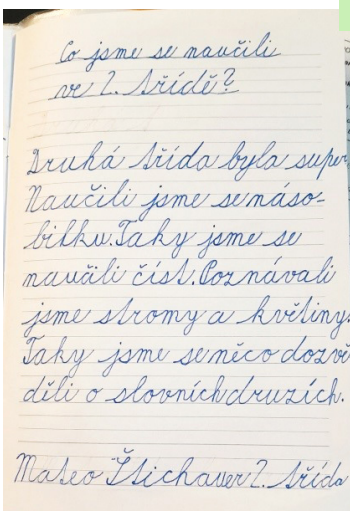 Co jsme se naučili
ve 2. třídě?
Druhá třída byla super
Naučili jsme se náso-
bilku. Taky jsme se
naučili číst. Poznávali
jsme stromy a květiny.
Taky jsme se něco dozvě
děli o slovních druzích.
Mateo Štichauer 2. třída